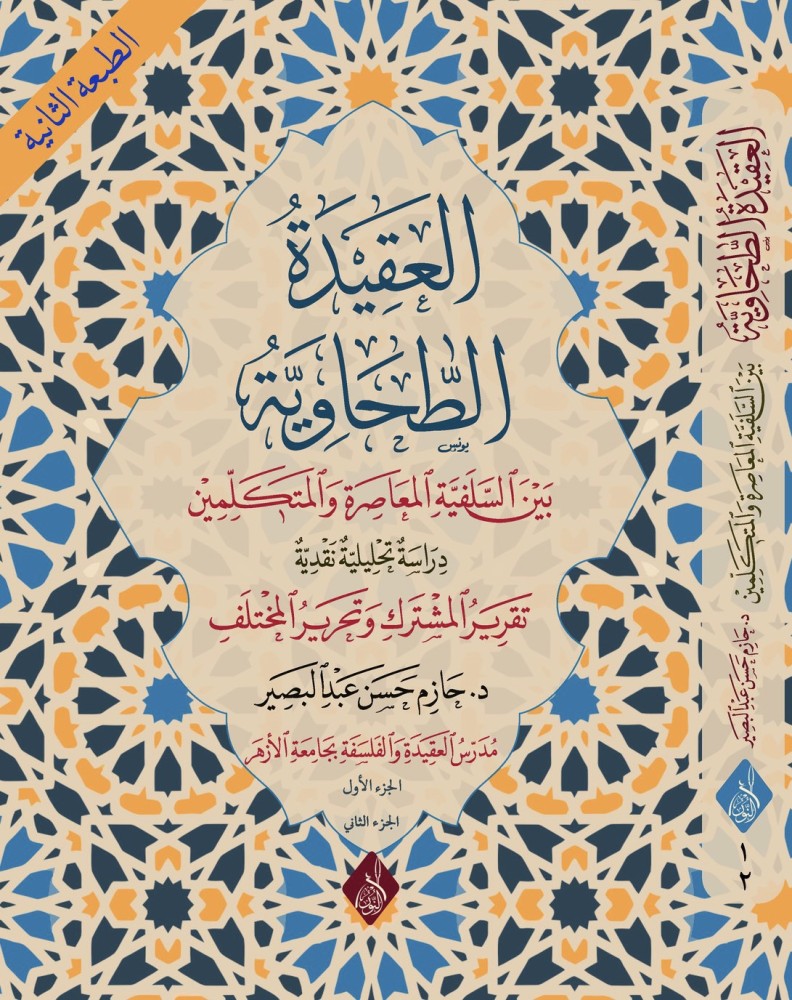 الطبعة الثانية
العَقِيدَةُ
الطَّحَاوِيَّةُ
يونس
بَيْنَ السَّلَفِيَّةِ المعَاصِرَةِ وَالمتَكَلِّمِين
دِرَاسَةٌ تَحْلِيلِيَّةٌ نَقْدِيَّةٌ
تَقْرِيرُ المشْتَركِ وَتَحْرِيرُ المخْتَلَفِ
د. حَازِم حَسَن عَبْدالبَصِير
مُدَرّسُ العَقِيدَةِ وَالفَلسَفَةِ بجَامِعَةِ الأزهَر
الجزء الأول
الجزء الثاني
النور
العَقِيدَةُ الطَّحَاوِيَّةُ
بَيْنَ السَّلَفِيَّةِ المعَاصِرَةِ وَالمتَكَلِّمِين
د. حَازِم حَسَن عَبْدالبَصِير
النور
١-٢